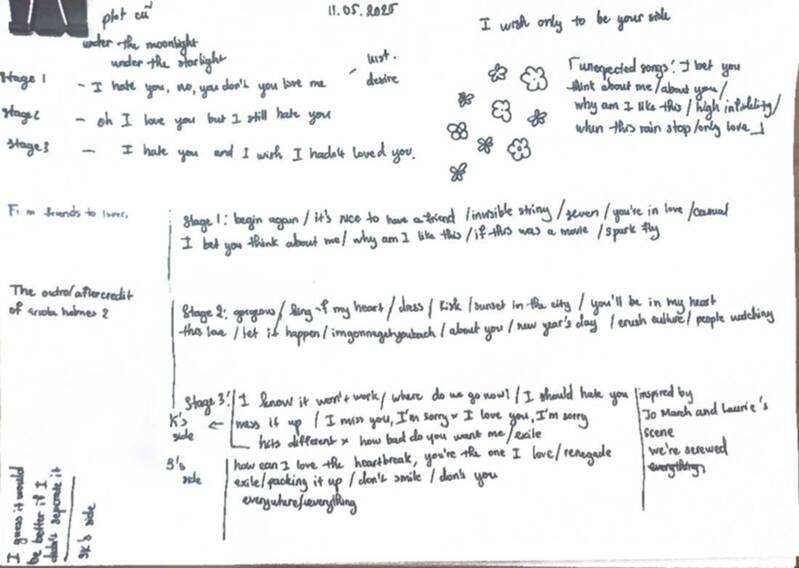 plot cũ
11.05.2025
I wish only to be your side
under the moonlight
under the starlight
Stage 1 - I hate you, no, you don't you love me
lust.
desire
Stage 2 - oh I love you but I still hate you
Stage 3 - I hate you and I wish I hadn't loved you.
「unexpected songs: I bet you
think about me/about you/
why am I like this / high infidelity/
when this rain stop/only love」
From friends to lover.
Stage 1: begin again / it's nice to have a friend / invisible string / seven / you're in love / casual
I bet you think about me / why am I like this / if this was a movie / spark fly
The outro/aftercredit
of enola holmes 2
Stage 2: gorgeous / king of my heart / dress / risk / sunset in the city / you'll be in my heart
this love / let it happen / imgonnagetyouback / about you / new year's day / crush culture / people watching
Stage 3:
K's
side
I know it won't work / where do we go now? / I should hate you
mess it up / I miss you, I'm sorry x I love you, I'm sorry
hits different x how bad do you want me / exile
inspired by
Jo March and Laurie's
scene
we're screwed
everything
S's
side
how can I love the heartbreak, you're the one I love / renegade
exile / packing it up / don't smile / don't you
everywhere/everything
I guess it would
be better if I
didn't separate it
SK's side